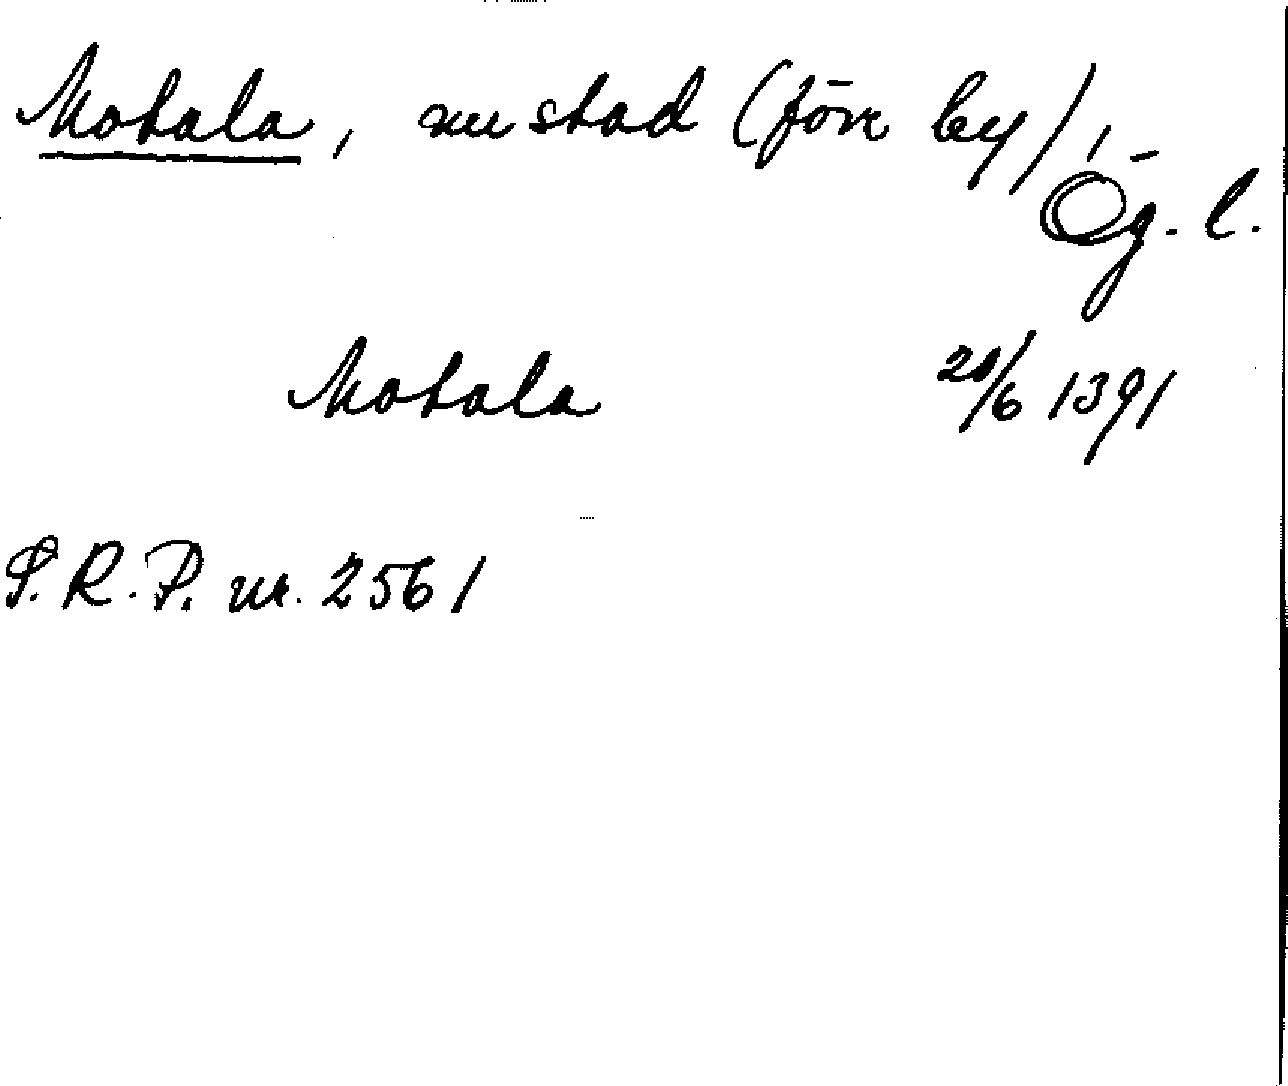 Motala, nu stad (förr by),
Ög. l.
Motala 20/6 1391
S.R.P. nr. 2561